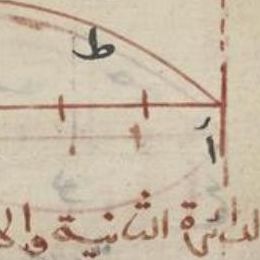 ط
أ
الدائرة الثانية وا